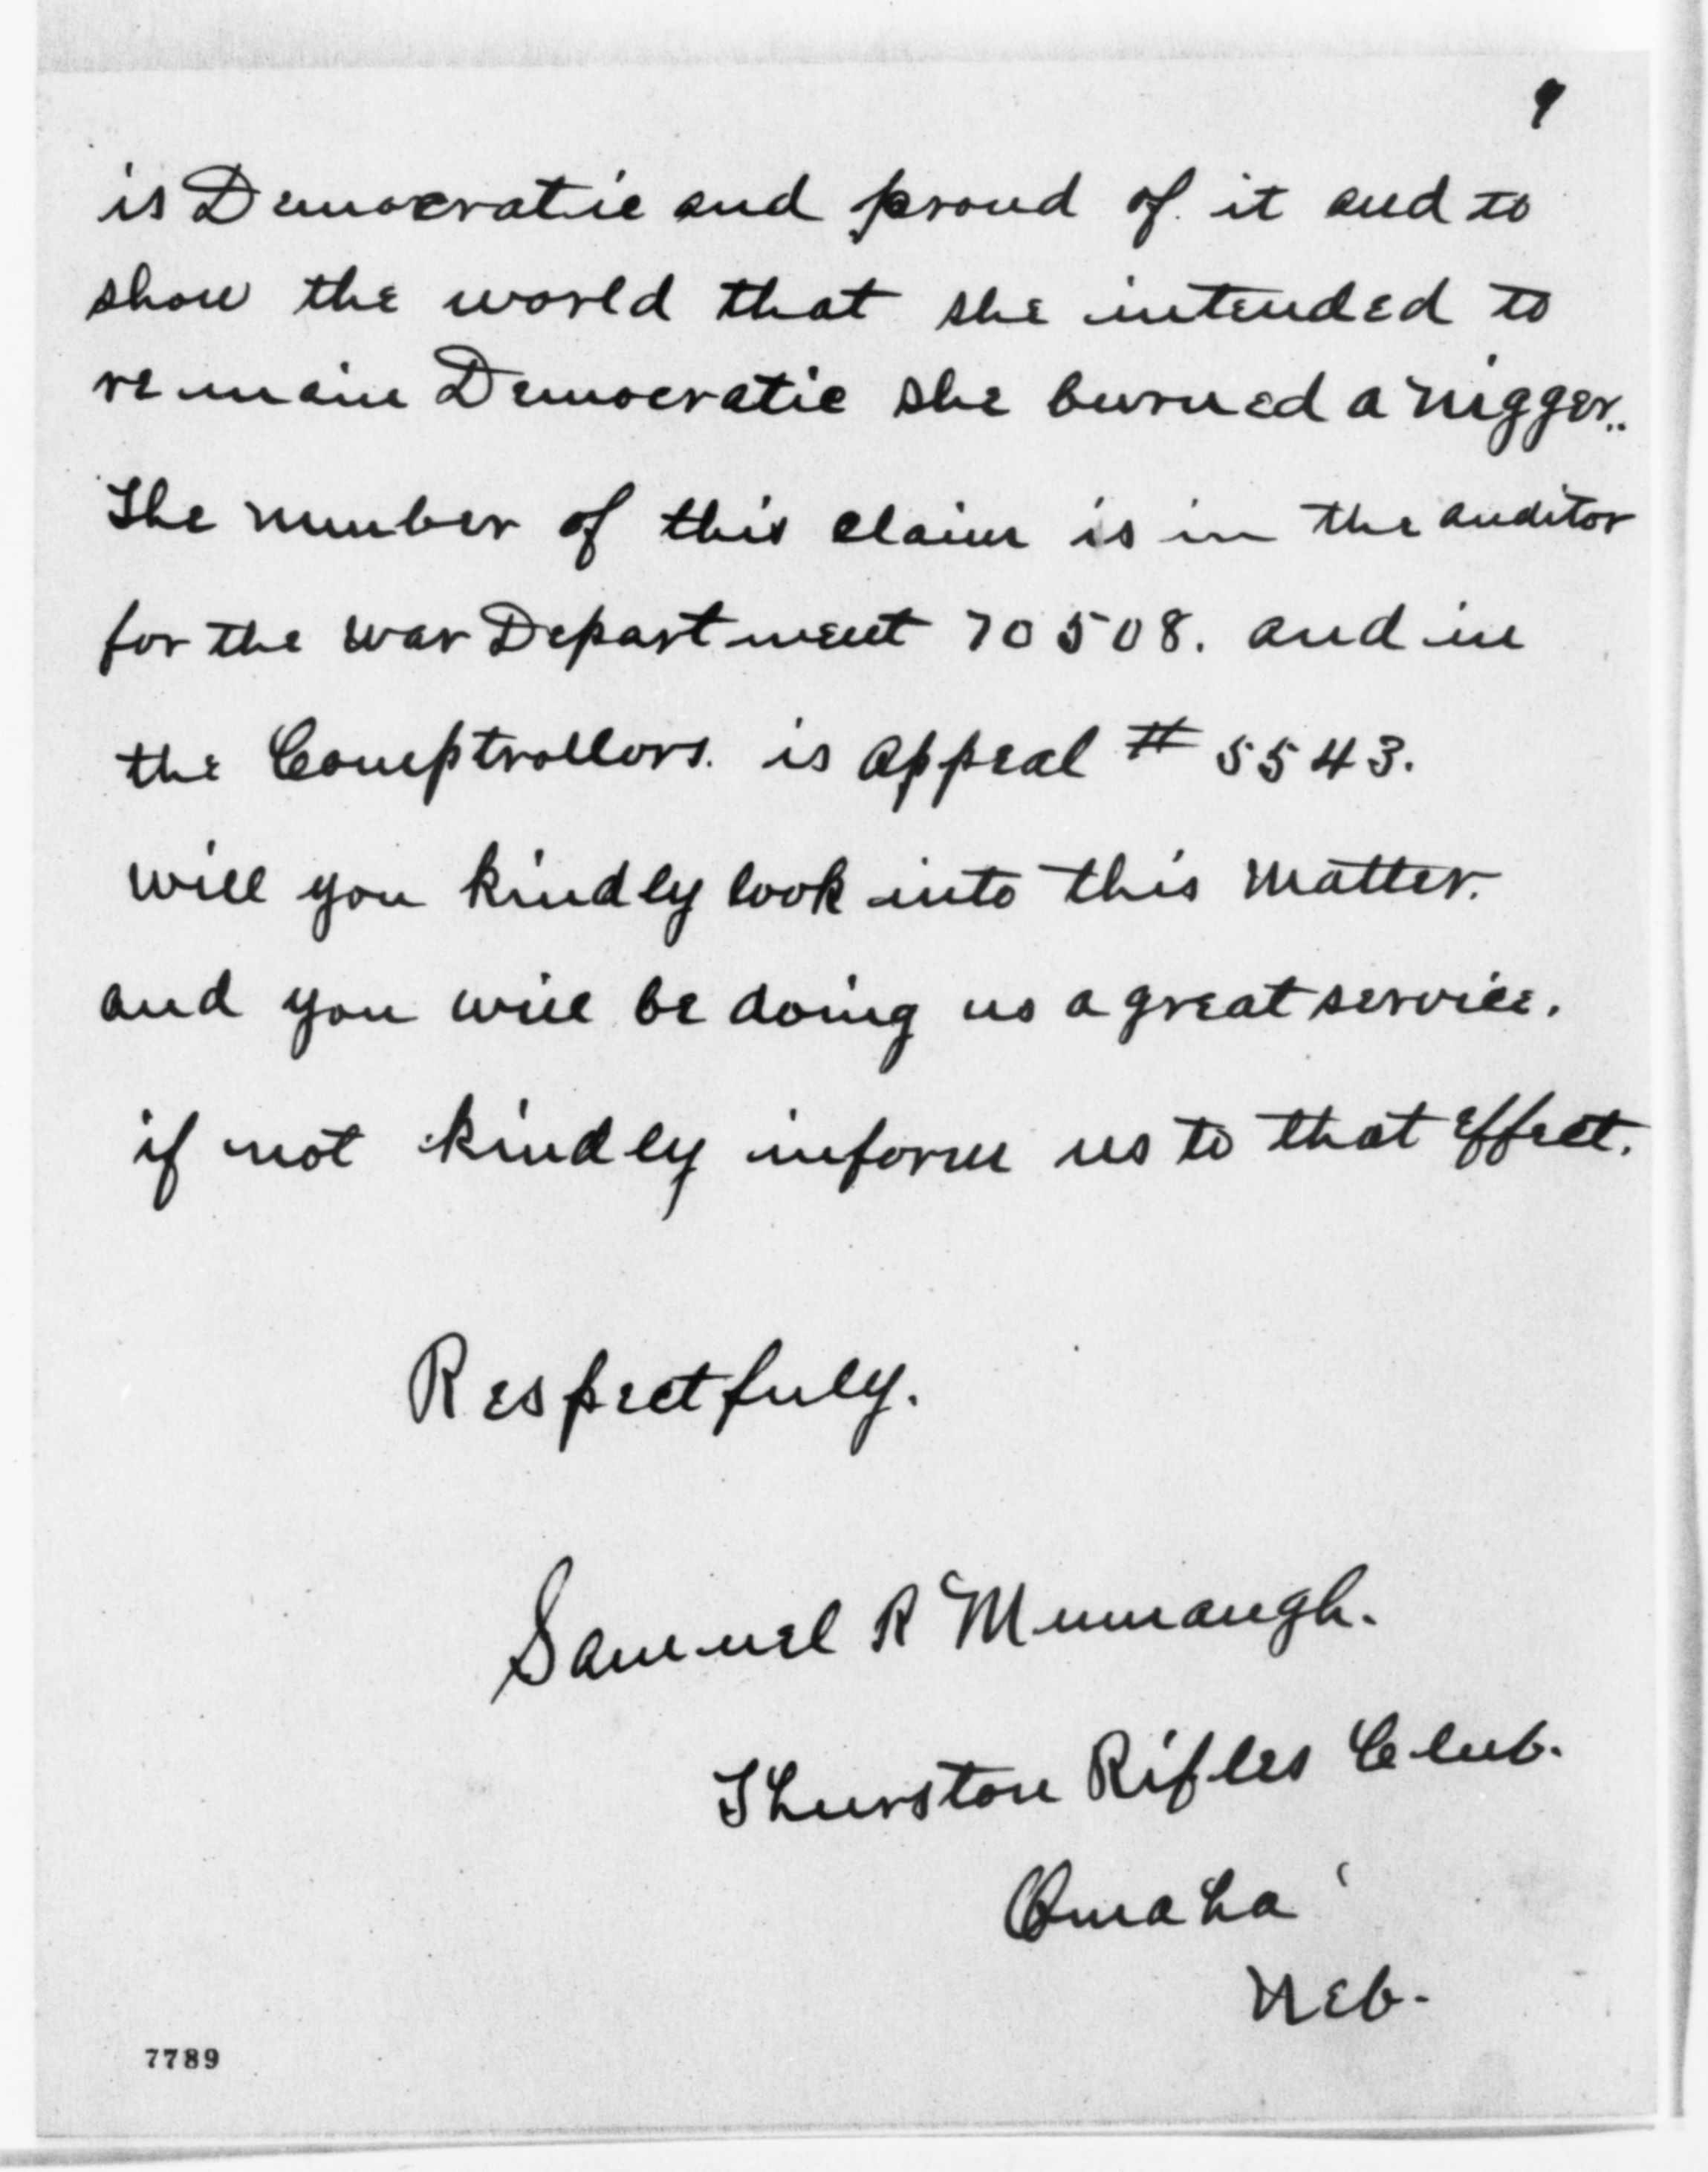 9
is Democratic and proud of it and to
show the world that she intended to
remain Democratic she burned a nigger..
The number of this claim is in the auditor
for the war Department 70508. and in
the Comptrollors. is appeal # 5543.
will you kindly look into this matter.
and you will be doing us a great service.
if not kindly inform us to that effect.
Respectfuly.
Samuel R Mumaugh.
Thurston Rifles Club.
Omaha
Neb.
7789